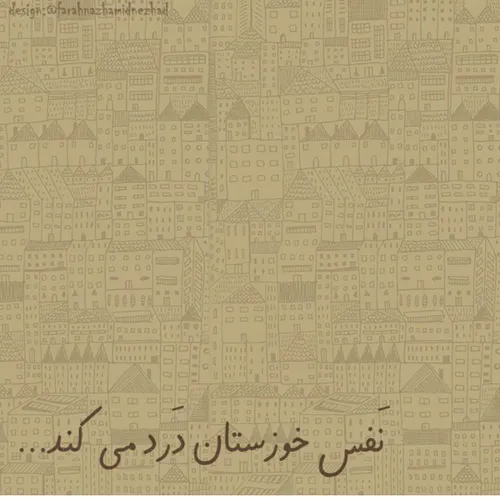 design:@farahnazhamidnezhad
نَفس خوزستان دَرد می کند...